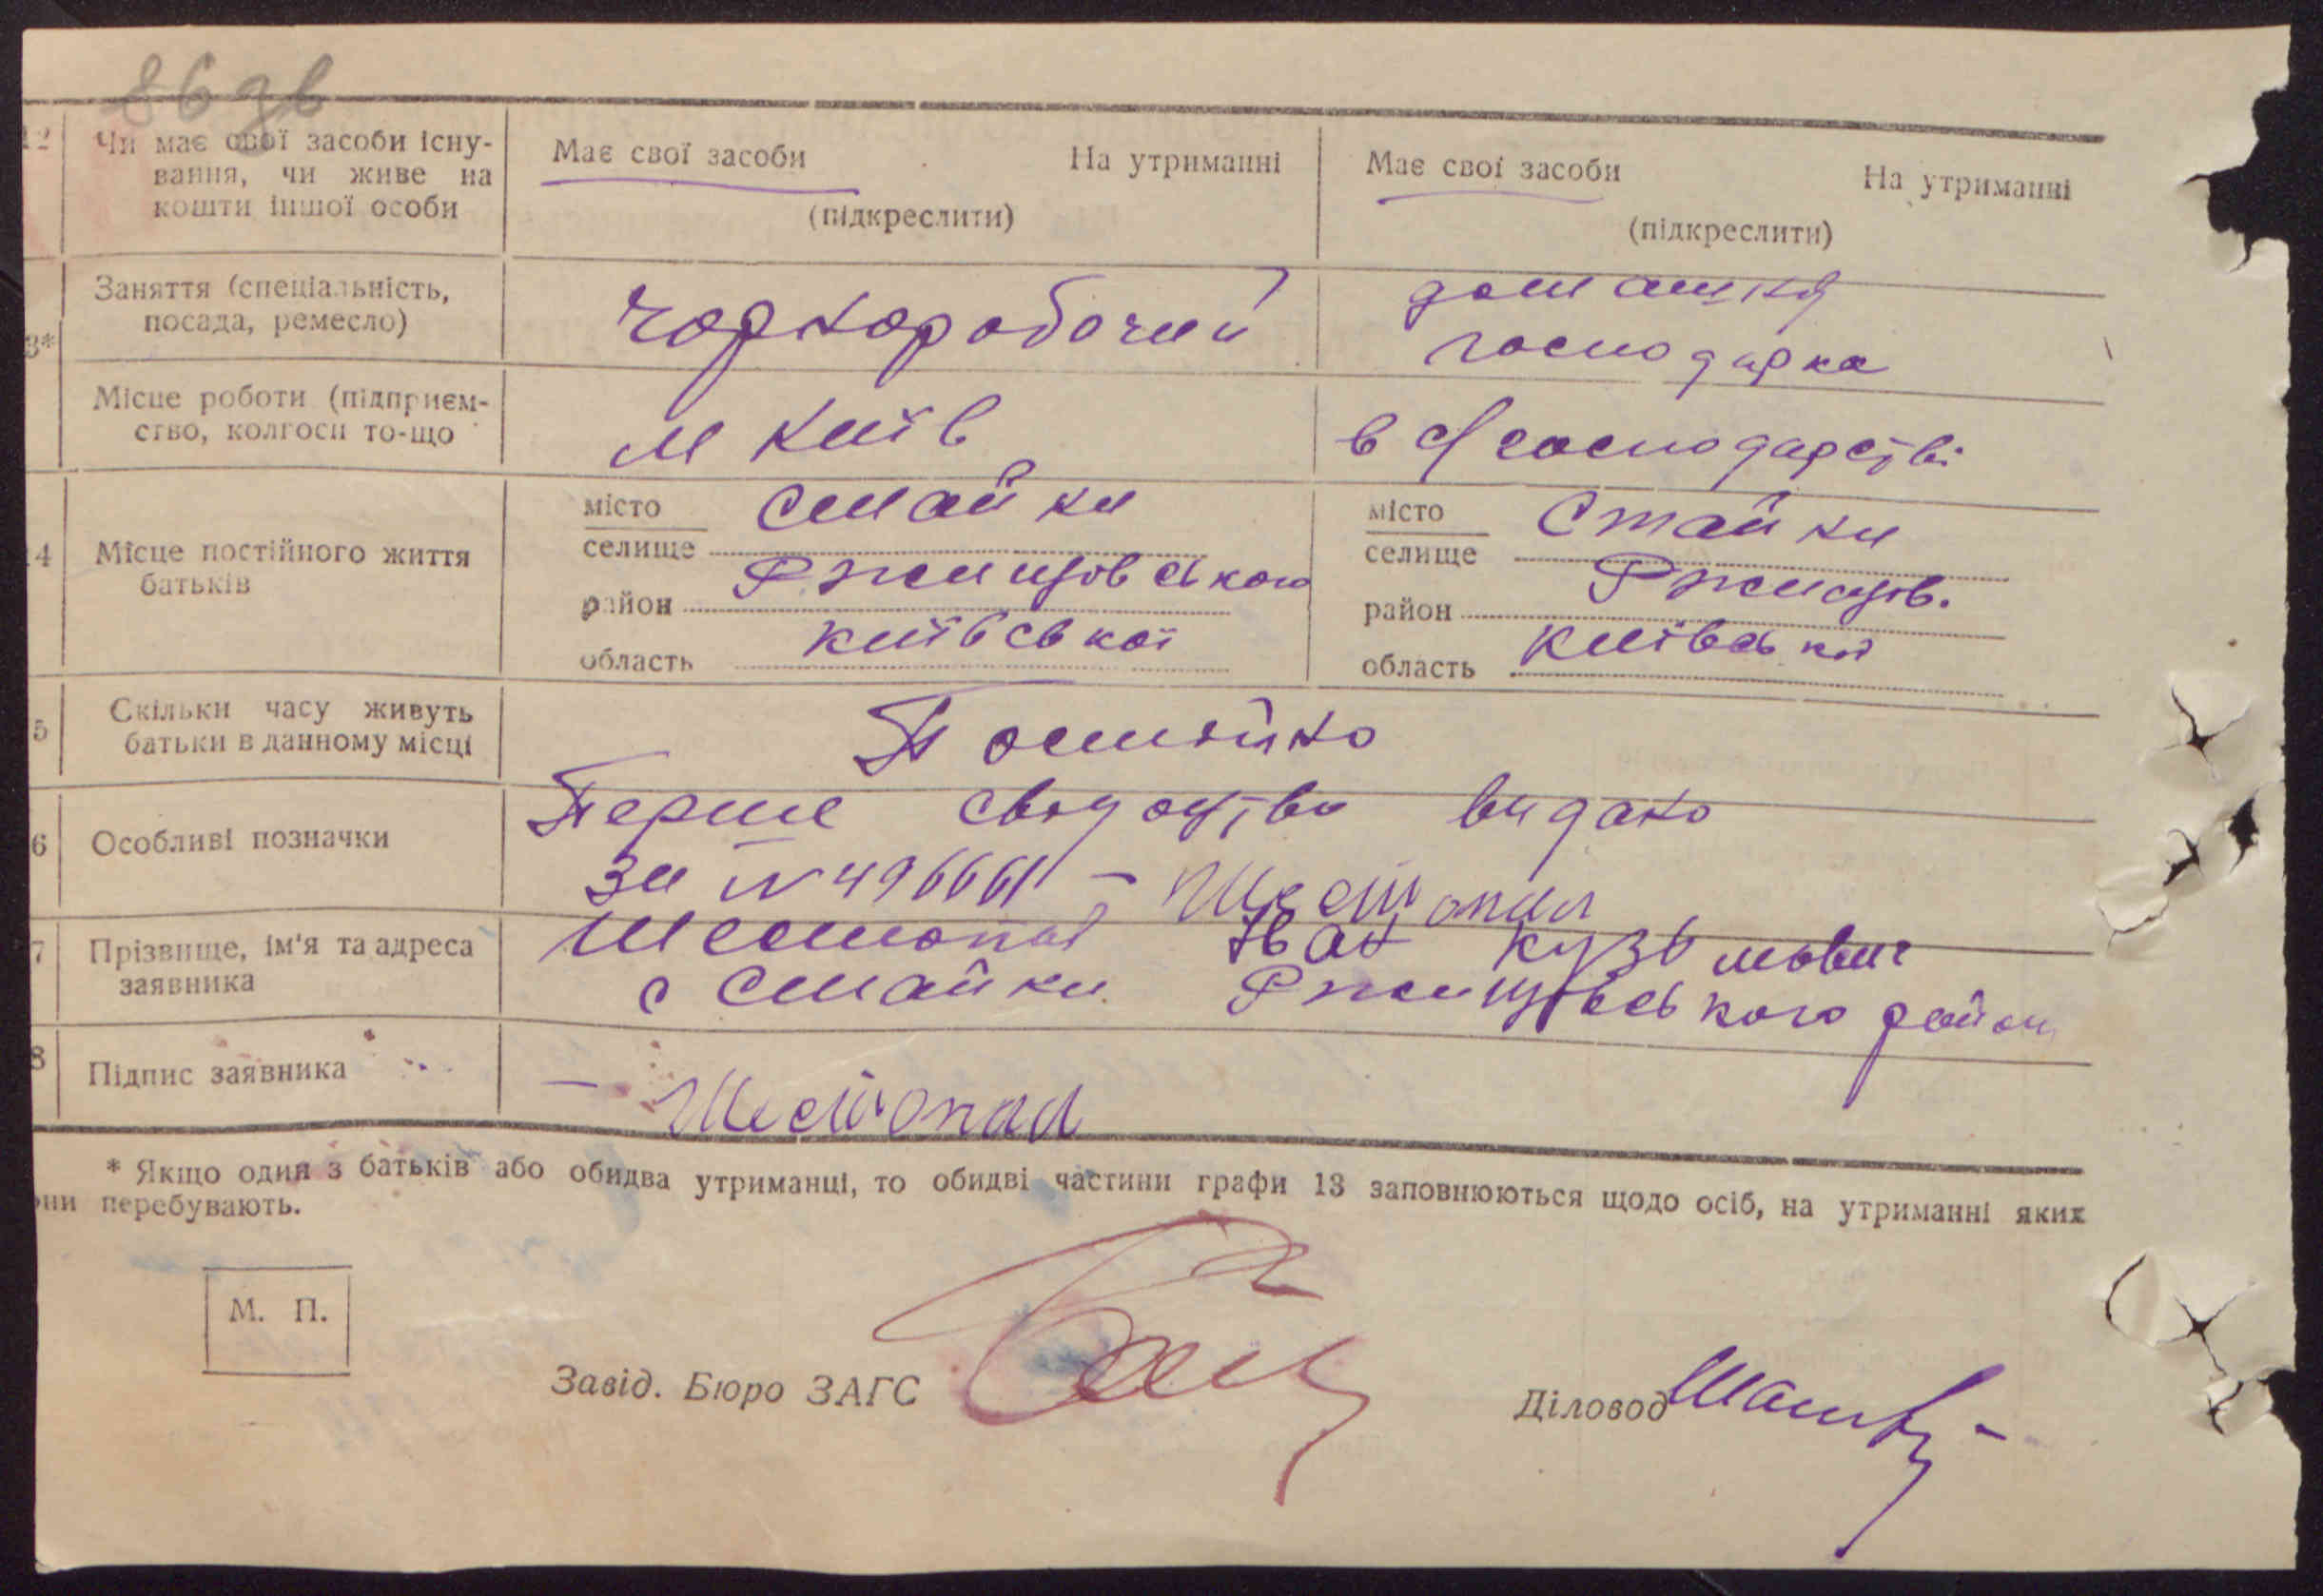 86 зв
12 Чи має свої засоби існу- Має свої засоби На утриманні Має свої засоби На утриманні
вання, чи живе на
кошти іншої особи (підкреслити) (підкреслити)
Заняття (спеціальність, чорноробочий домашня
посада, ремесло) господарка
3*
Місце роботи (підприєм- м Київ в с/господарстві
ство, колгосп то-що
4 Місце постійного життя місто Стайки місто Стайки
батьків селище селище
район Ржищовського район Ржищов.
область київської область київської
5 Скільки часу живуть Постійно
батьки в данному місці
6 Особливі позначки Перше свідоцтво видано
за № 496661 – Шестопал
7 Прізвище, ім'я та адреса Шестопал Іван Кузьмович
заявника с Стайки Ржищовського район
8 Підпис заявника – Шестопал
* Якщо один з батьків або обидва утриманці, то обидві частини графи 13 заповнюються щодо осіб, на утриманні яких
они перебувають.
М. П.
Завід. Бюро ЗАГС
Діловод